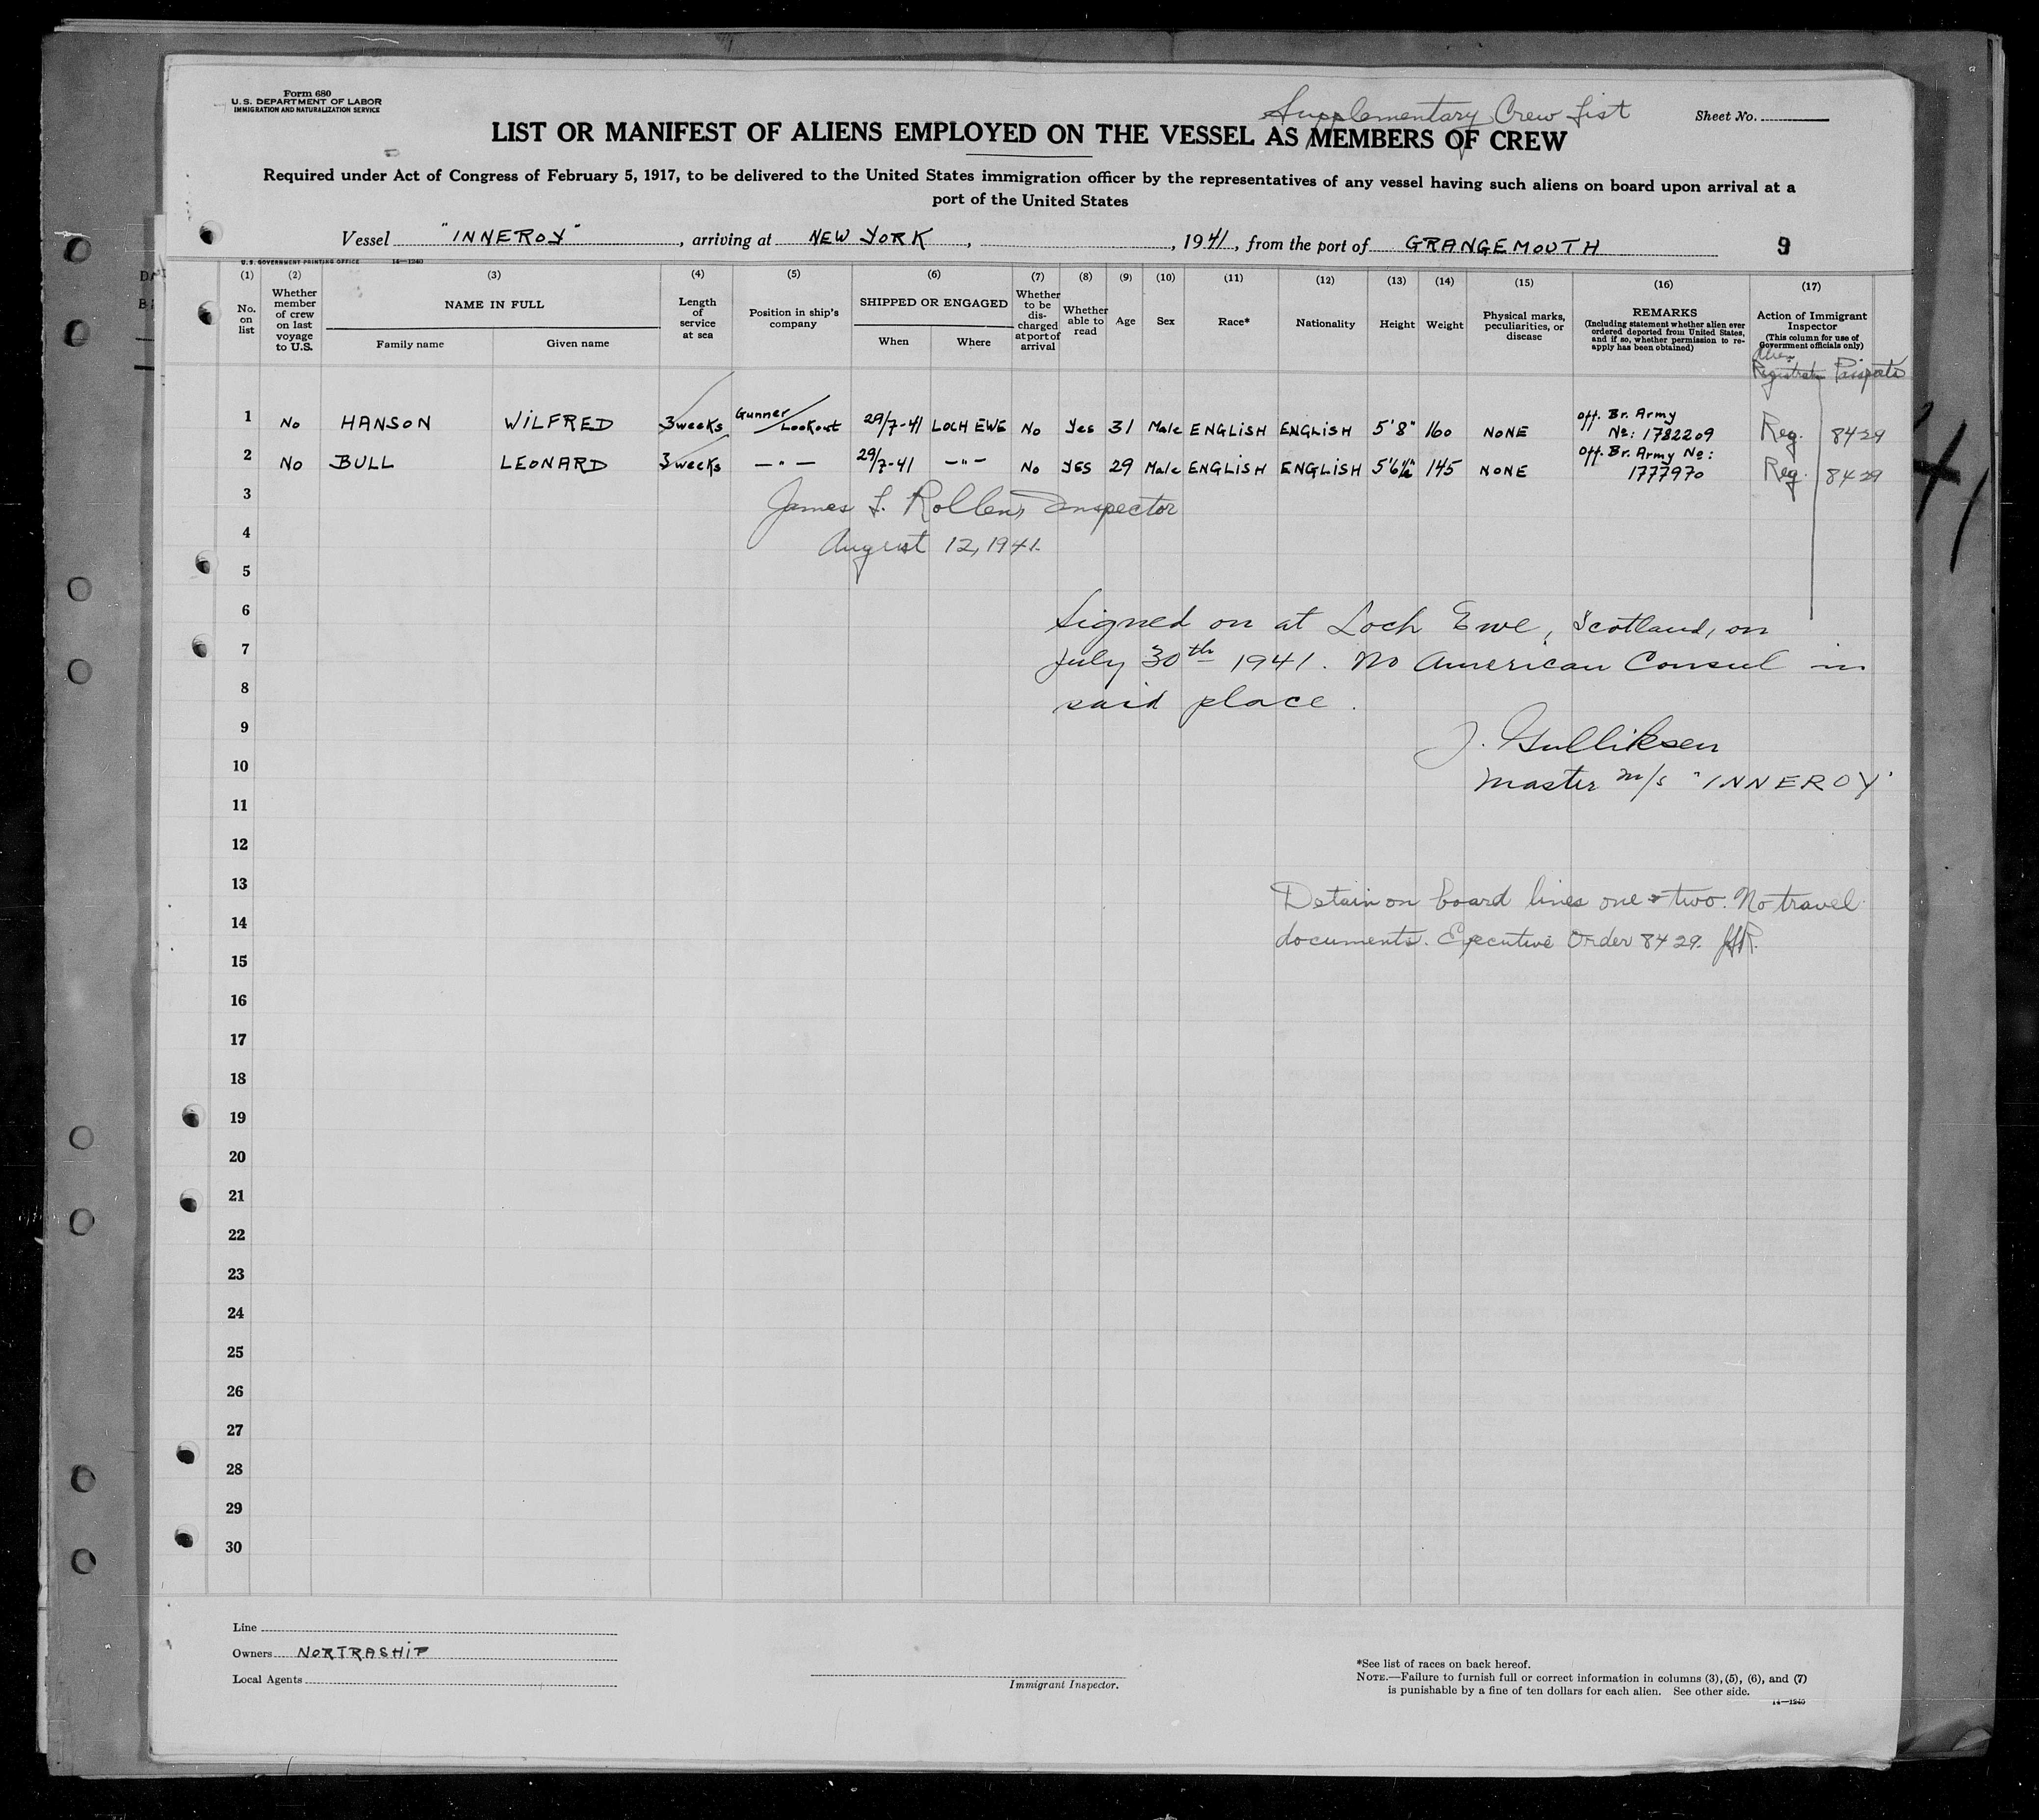 Form 680
U.S. DEPARTMENT OF LABOR
IMMIGRATION AND NATURALIZATION SERVICE
Supplementary Crew List
Sheet No.
LIST OR MANIFEST OF ALIENS EMPLOYED ON THE VESSEL AS MEMBERS OF CREW
Required under Act of Congress of February 5, 1917, to be delivered to the United States immigration officer by the representatives of any vessel having such aliens on board upon arrival at a
port of the United States
Vessel "INNEROY", arriving at NEW YORK, , 1941, from the port of GRANGEMOUTH 9
U.S. GOVERNMENT PRINTING OFFICE 14—1240
(1) (2) (3) (4) (5) (6) (7) (8) (9) (10) (11) (12) (13) (14) (15) (16) (17)
No. on list
Whether member of crew on last voyage to U.S.
NAME IN FULL
Family name
Given name
Length of service at sea
Position in ship's company
SHIPPED OR ENGAGED
When
Where
Whether to be discharged at port of arrival
Whether able to read
Age
Sex
Race*
Nationality
Height
Weight
Physical marks, peculiarities, or disease
REMARKS
(Including statement whether alien ever ordered deported from United States, and if so, whether permission to reapply has been obtained)
Action of Immigrant Inspector
(This column for use of Government officials only)
Alien Registration Passports
1 No HANSON WILFRED 3 weeks Gunner/Lookout 29/7-41 LOCH EWE No Yes 31 Male ENGLISH ENGLISH 5'8" 160 NONE Off. Br. Army No: 1782209 Reg. 8429
2 No BULL LEONARD 3 weeks —"— 29/7-41 —"— No YES 29 Male ENGLISH ENGLISH 5'6½" 145 NONE Off. Br. Army No: 1777970 Reg. 8429
3
James L. Rollens Inspector
4
August 12, 1941.
5
6
Signed on at Loch Ewe, Scotland, on
7
July 30th 1941. No American Consul in
8
said place.
9
J. Gulliksen
10
Master m/s "INNEROY"
11
12
13
Detain on board lines one & two. No travel
14
documents. Executive Order 8429. JLR.
15
16
17
18
19
20
21
22
23
24
25
26
27
28
29
30
Line
Owners NORTRASHIP
Local Agents
Immigrant Inspector.
*See list of races on back hereof.
NOTE.—Failure to furnish full or correct information in columns (3), (5), (6), and (7)
is punishable by a fine of ten dollars for each alien. See other side.
14—1240